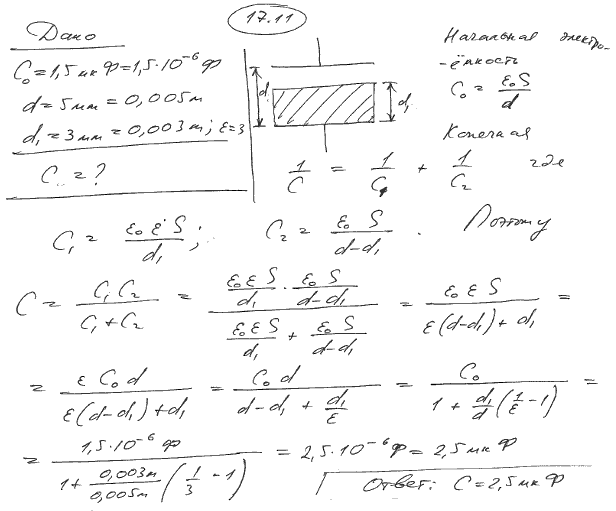 17.11
Дано
C₀=1,5 мкФ=1,5·10⁻⁶ Ф
d=5мм=0,005м
d₁=3мм=0,003м; ε=3
C = ?
d
d₁
Начальная электро-
-ёмкость
C₀ = ε₀S/d
Конечная
1/C = 1/C₁ + 1/C₂ где
C₁ = ε₀εS/d₁; C₂ = ε₀S/(d-d₁). Поэтому
C = C₁C₂/(C₁+C₂) = (ε₀εS/d₁ · ε₀S/(d-d₁))/(ε₀εS/d₁ + ε₀S/(d-d₁)) = ε₀εS/(ε(d-d₁)+d₁) =
= εC₀d/(ε(d-d₁)+d₁) = C₀d/(d-d₁+d₁/ε) = C₀/(1+d₁/d(1/ε-1)) =
= 1,5·10⁻⁶ Ф/(1+0,003м/0,005м(1/3-1)) = 2,5·10⁻⁶ Ф = 2,5 мкФ
Ответ: C=2,5 мкФ